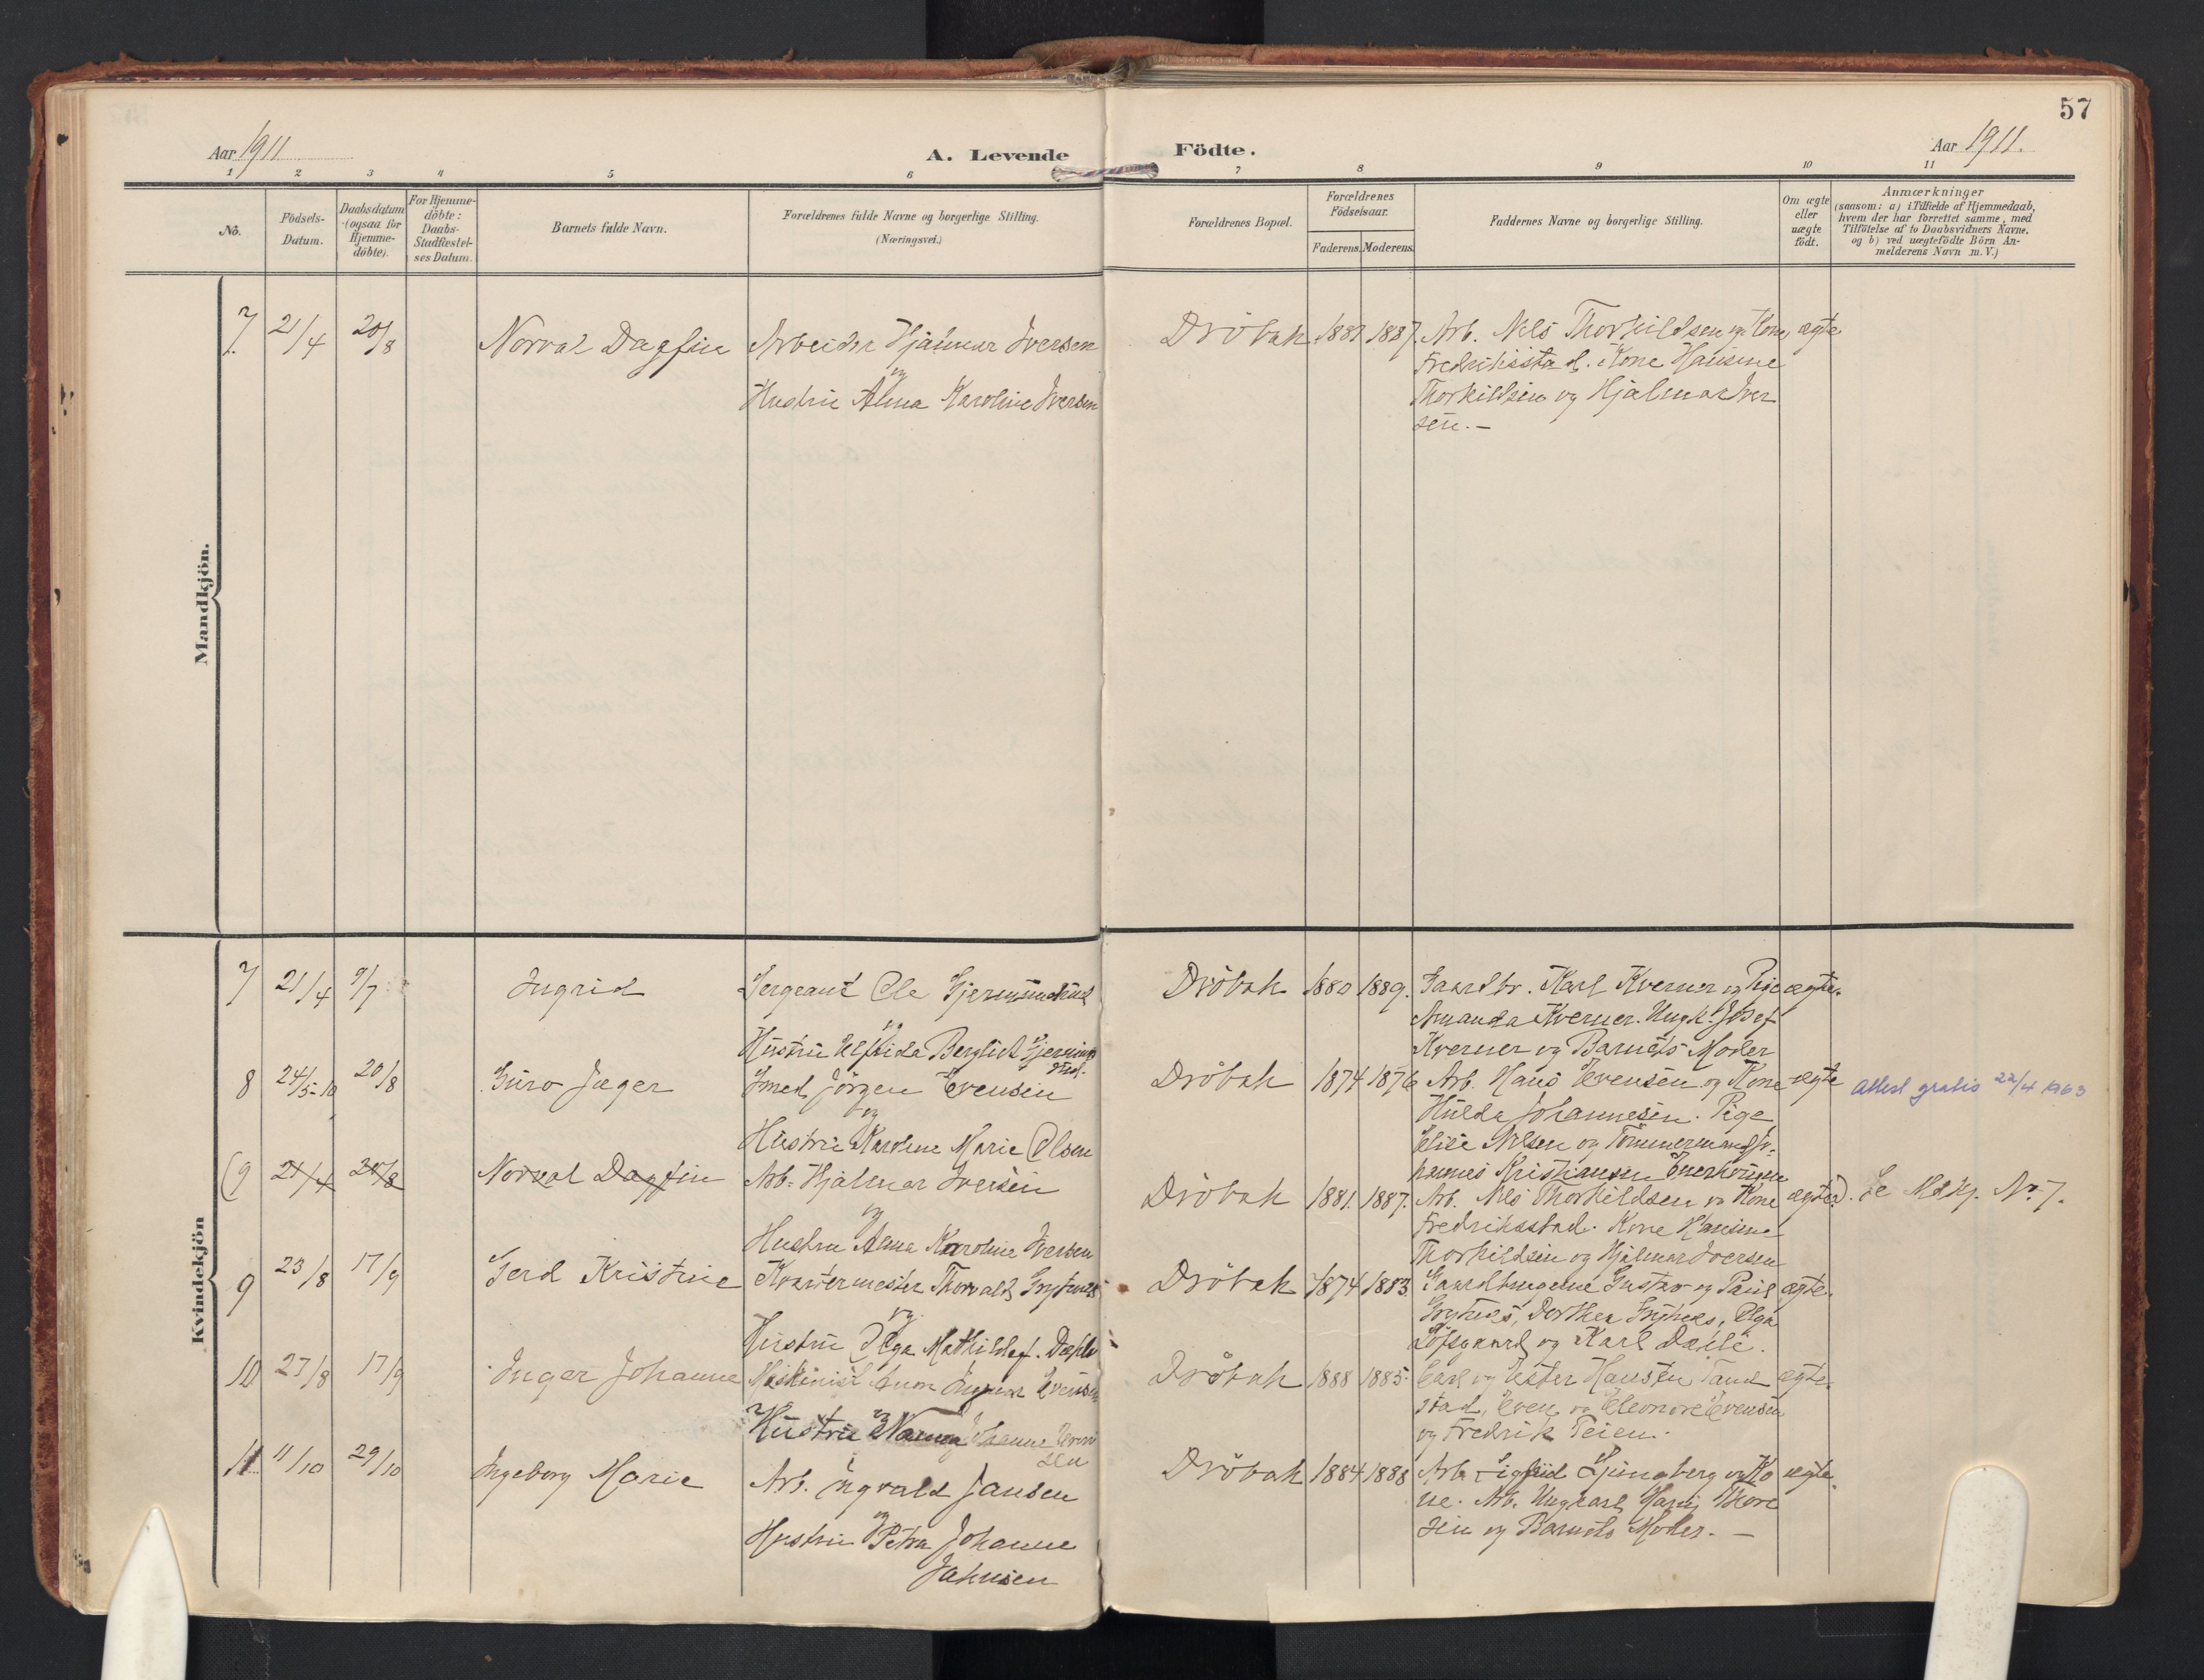 57
Aar 1911
A. Levende
Födte.
Aar 1911.
1 2 3 4 5 6 7 8 9 10 11
No.
Födsels-
Datum.
Daabsdatum
(ogsaa for
Hjemme-
döbte).
For Hjemme-
döbte:
Daabs-
Stadfæstel-
ses Datum.
Barnets fulde Navn.
Forældrenes fulde Navne og borgerlige Stilling.
(Næringsvei.)
Forældrenes Bopæl.
Forældrenes
Födselsaar.
Faderens.
Moderens.
Faddernes Navne og borgerlige Stilling.
Om ægte
eller
uægte
födt.
Anmærkninger
(saasom: a) i Tilfælde af Hjemmedaab,
hvem der har forrettet samme, med
Tilföielse af to Daabsvidners Navne.
og b) ved uægtefödte Börn An-
melderens Navn m. V.)
Mandkjön.
7. 21/4 20/8 Norval Dagfin Arbeider Hjalmar Iversen
og
Hustru Alma Karoline Iversen
Dröbak 1881 1887. Arb. Nils Thorkildsen og Kone, ægte
Fredriksstad. Kone Hansine
Thorkildsen og Hjalmar Iver
sen.—
Kvindekjön
7 21/4 9/7 Ingrid Sergeant Ole
og
Hustru Bergliot
Dröbak 1880 1889. Gaardbr. Karl Kverner og Pige ægte.
Amanda Kverner. Ungk. Josef
Kverner og Barnets Moder
8 24/5-10 20/8 Guro Jæger Smed Jörgen Evensen
og
Hustru Karoline Marie Olsen
Dröbak 1874 1876 Arb. Hans Evensen og Kone ægte Attest gratis 22/4 1963
Hulda Johannesen. Pige
Elise Nilsen og Tömmermand Jo-
hannes Kristiansen
(9 21/4 20/8 Norval Dagfin Arb. Hjalmar Iversen
og
Hustru Alma Karoline Iversen
Dröbak 1881. 1887. Arb. Nils Thorkildsen og Kone ægte). Se Mdkj. No. 7.
Fredriksstad. Kone Hansine
Thorkildsen og Hjalmar Iversen
9 23/8 17/9 Gerd Kristine Kvartermester Thorvald Grytnes
og
Hustru Olga Mathilde f.
Dröbak 1874 1883. Gaardbrugerne Gustav og Paul ægte.
Grytnes, Dorthea Grytnes, Olga
Löfsgaard og Karl Dahle.
10 27/8 17/9 Inger Johanne Maskinist Evensen
og
Hustru Johanne Even
sen
Dröbak 1888 1885. Carl og Ester Hansen Tand ægte.
stad, Even og Eleonore Evensen
og Fredrik Teien.
11 11/10 29/10 Ingeborg Marie Arb. Ingvald Jansen
og
Hustru Petra Johanne
Jahnsen
Dröbak 1884 1888 Arb. Sigfrid Ljungberg og Ko ægte.
ne. Arb. Ungkarl Thore
sen og Barnets Moder.—